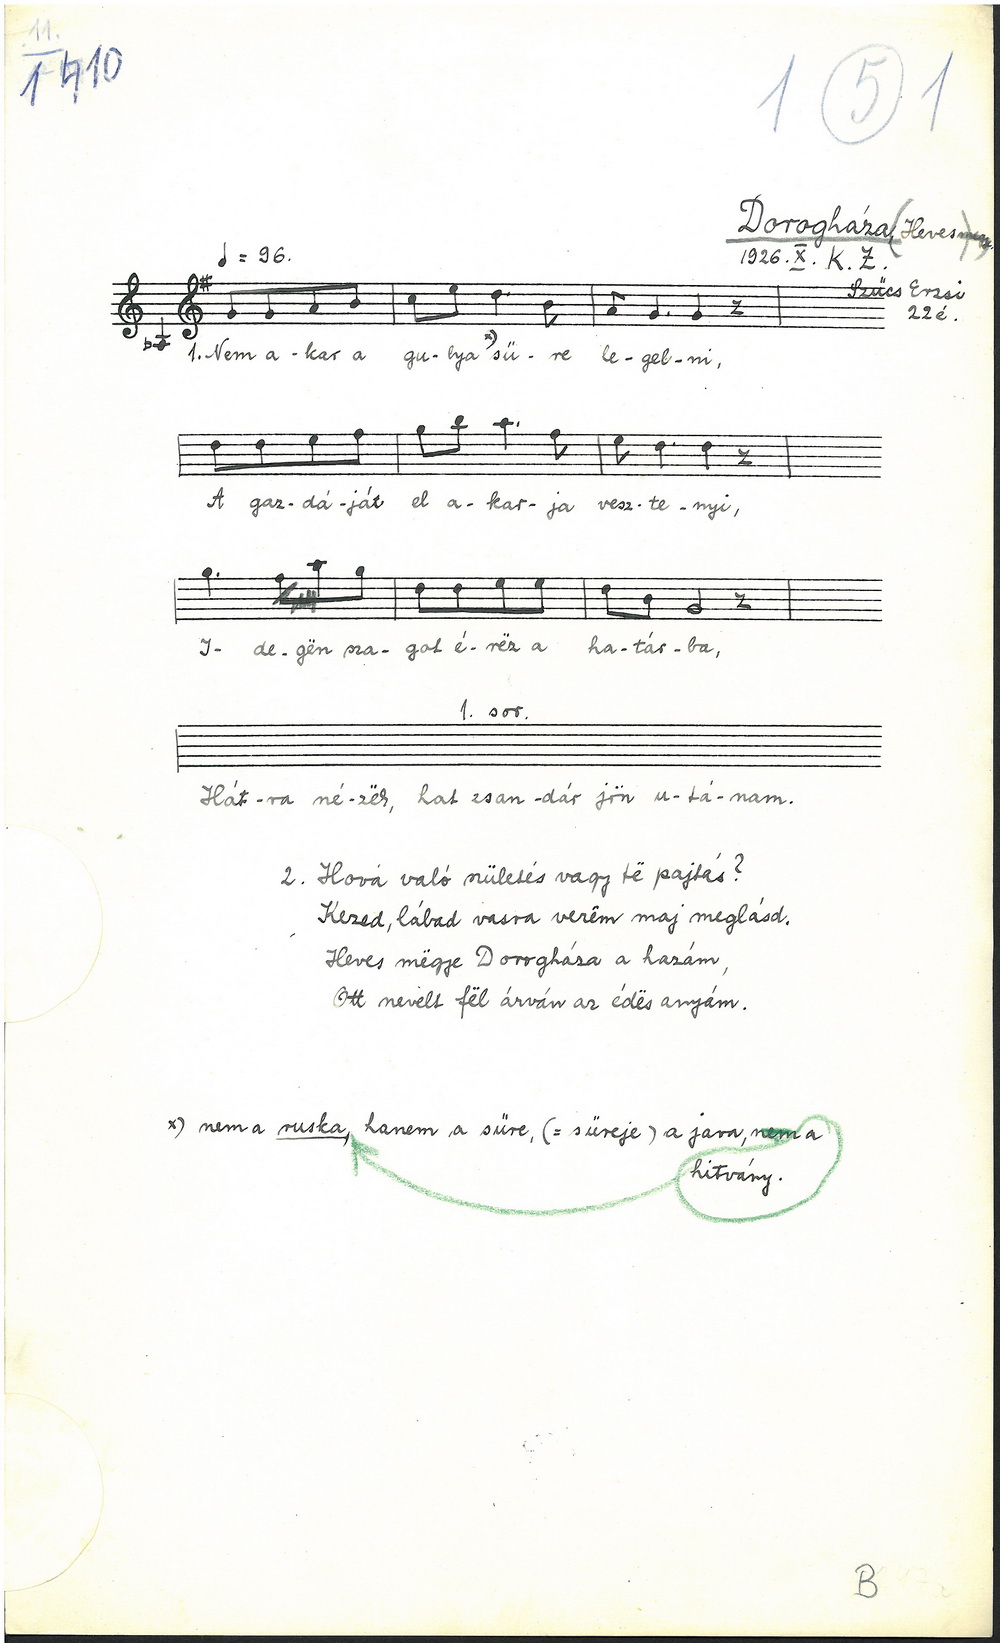 11.
1 5 1
Dorogháza (Heves
1926. X. K. Z.
Szűcs Erzsi
22 é.
♩ = 96.
1. Nem a - kar a gu - lya x) sü - re le - gel - ni,
A gaz - dá - ját el a - kar - ja vesz - te - nyi,
I - de - gën sza - got é - rëz a ha - tás - ba,
1. sor.
Hát - ra né - zëk, hat zsan - dár jön u - tá - nam.
2. Hová való születés vagy të pajtás?
Kezed, lábad vasra verëm maj meglásd.
Heves mëgye Dorogháza a hazám,
Ott nevelt fël árván az édës anyám.
x) nem a ruska, hanem a süre, (= süreje) a java, nem a
hitvány.
B